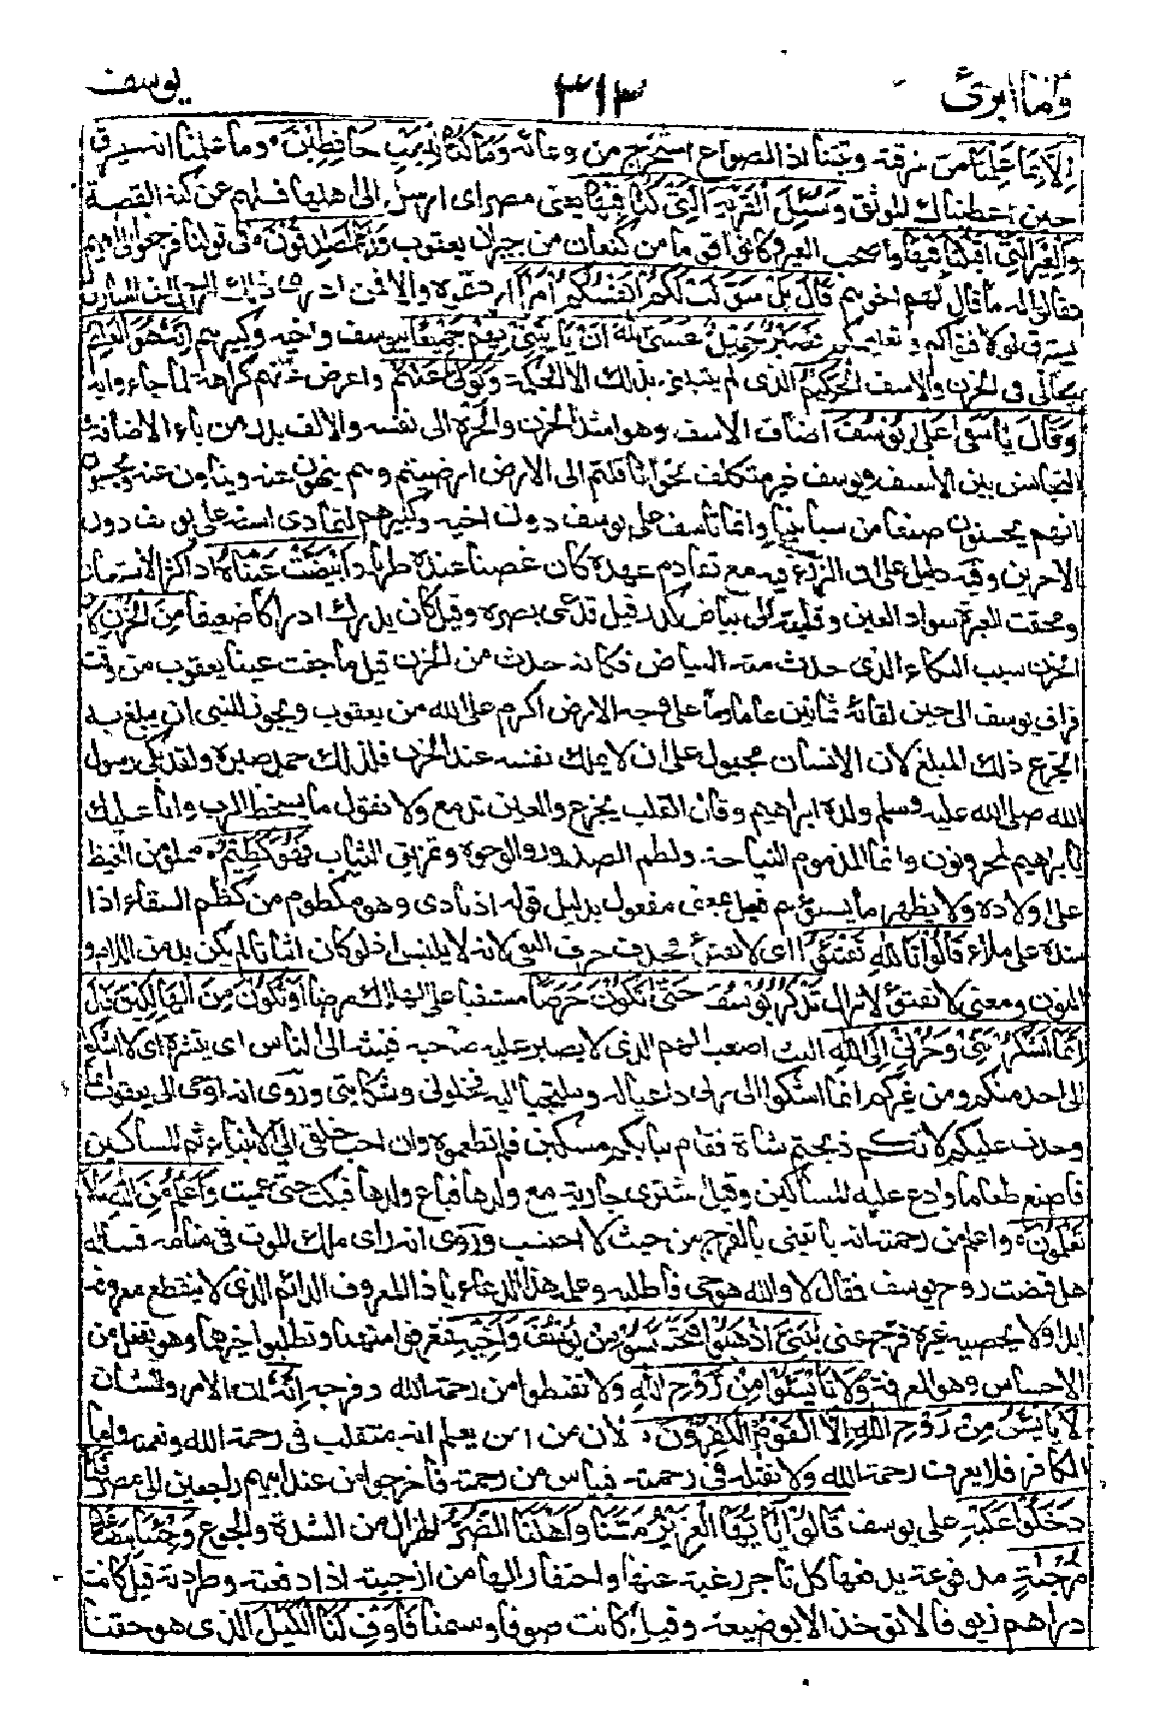 وما ابرئ ٣١٣ يوسف
إِلَّا بِمَا عَلِمْنَا من سرقته وتيقنا اذ الصواع استخرج من وعائه وَمَا كُنَّا لِلْغَيْبِ حَافِظِيْنَ وما علمنا انه سيرق
حين اعطيناك الموثق وَسْئَلِ الْقَرْيَةَ الَّتِيْ كُنَّا فِيْهَا يعنى مصر اى ارسل الى اهلها فسلهم عن كنه القصة
وَالْعِيْرَ الَّتِيْ اَقْبَلْنَا فِيْهَا واصحب العير وكانوا قوما من كنعان من جيران يعقوب وَاِنَّا لَصٰدِقُوْنَ فى قولنا فرجعوا الى ابيهم
فقالوا له ما قال لهم اخوهم قَالَ بَلْ سَوَّلَتْ لَكُمْ اَنْفُسُكُمْ اَمْرًا اردتموه والا فمن ادرى ذلك الرجل ان السارق
يسرق لولا فتواكم وتعليمكم فَصَبْرٌ جَمِيْلٌ عَسَى اللّٰهُ اَنْ يَّأْتِيَنِيْ بِهِمْ جَمِيْعًا بيوسف واخيه وكبيرهم اِنَّهُ هُوَ الْعَلِيْمُ
بحالى فى الحزن والاسف الْحَكِيْمُ الذى لم يبتلنى بذلك الا لحكمة وَتَوَلّٰى عَنْهُمْ واعرض عنهم كراهة لما جاءوا به
وَقَالَ يٰاَسَفٰى عَلٰى يُوْسُفَ اضاف الاسف وهو اشد الحزن والحسرة الى نفسه والالف بدل من ياء الاضافة
والتجانس بين الاسف ويوسف غير متكلف نحو اثاقلتم الى الارض ارضيتم وهم ينهون عنه وينأون عنه ويحسبون
انهم يحسنون صنعا من سبأ بنبأ وانما تأسف على يوسف دون اخيه وكبيرهم لتمادى اسفه على يوسف دون
الاخرين وفيه دليل على ان الرزء فيه مع تقادم عهده كان غضا عنده طريا وَابْيَضَّتْ عَيْنٰهُ اذ اكثر الاستعبار
ومحقت العبرة سواد العين وقلبته الى بياض كدر قيل قد عمى بصره وقيل كان يدرك ادراكا ضعيفا مِنَ الْحُزْنِ لان
الحزن سبب البكاء الذى حدث منه البياض فكانه حدث من الحزن قيل ما جفت عينا يعقوب من وقت
فراق يوسف الى حين لقائه ثمانين عاما وما على وجه الارض اكرم على الله من يعقوب ويجوز للنبى ان يبلغ به
الجزع ذلك المبلغ لان الانسان مجبول على ان لا يملك نفسه عند الحزن فلذلك حمد صبره ولقد بكى رسول
الله صلى الله عليه وسلم ولده ابراهيم وقال القلب يجزع والعين تدمع ولا نقول ما يسخط الرب وانا عليك
يا ابراهيم لمحزونون وانما المذموم النياحة ولطم الصدور والوجوه وتمزيق الثياب فَهُوَ كَظِيْمٌ مملو من الغيظ
على اولاده ولا يظهر ما يسوؤهم فعيل بمعنى مفعول بدليل قوله اذ نادى وهو مكظوم من كظم السقاء اذا
شده على ملأه قَالُوْا تَاللّٰهِ تَفْتَؤُا اى لا تفتؤ فحذف حرف النفى لانه لا يلتبس اذ لو كان اثباتا لم يكن بد من اللام و
النون ومعنى لا تفتؤ لا تزال تَذْكُرُ يُوْسُفَ حَتّٰى تَكُوْنَ حَرَضًا مشفيا على الهلاك مرضا اَوْ تَكُوْنَ مِنَ الْهَالِكِيْنَ قَالَ
اِنَّمَا اَشْكُوْا بَثِّيْ وَحُزْنِيْ اِلَى اللّٰهِ البث اصعب الهم الذى لا يصبر عليه صاحبه فيبثه الى الناس اى ينشره اى لا اشكو
الى احد منكم ومن غيركم انما اشكوا الى ربى داعيا له وملتجيا اليه فخلونى وشكايتى وروى انه اوحى الى يعقوب انما
وجدت عليكم لانكم ذبحتم شاة فقام ببابكم مسكين فلم تطعموه وان احب خلقى الى الانبياء ثم المساكين
فاصنع طعاما وادع عليه المساكين وقيل شترى جارية مع ولدها فباع ولدها فبكت حتى عميت وَاَعْلَمُ مِنَ اللّٰهِ مَا لَا
تَعْلَمُوْنَ واعلم من رحمته انه ياتينى بالفرج من حيث لا احتسب وروى انه راى ملك الموت فى منامه فساله
هل قبضت روح يوسف فقال لا والله هو حى فاطلبه وعلمه هذا الدعاء يا ذا المعروف الدائم الذى لا ينقطع معروفه
ابدا ولا يحصيه غيره فرج عنى يٰبَنِيَّ اذْهَبُوْا فَتَحَسَّسُوْا مِنْ يُّوْسُفَ وَاَخِيْهِ فتعرفوا منهما وتطلبوا خبرهما وهو تفعل من
الاحساس وهو المعرفة وَلَا تَايْئَسُوْا مِنْ رَّوْحِ اللّٰهِ ولا تقنطوا من رحمة الله وفرجه اِنَّهُ ان الامر والشان
لَا يَايْئَسُ مِنْ رَّوْحِ اللّٰهِ اِلَّا الْقَوْمُ الْكٰفِرُوْنَ لان من امن يعلم انه متقلب فى رحمة الله ونعمته واما
الكافر فلا يعرف رحمة الله ولا تقلبه فى رحمته فييأس من رحمته فاخرجوا من عند ابيهم راجعين الى مصر فَلَمَّا
دَخَلُوْا عَلَيْهِ على يوسف قَالُوْا يٰاَيُّهَا الْعَزِيْزُ مَسَّنَا وَاَهْلَنَا الضُّرُّ الهزال من الشدة والجوع وَجِئْنَا بِبِضَاعَةٍ
مُّزْجٰةٍ مدفوعة يدفعها كل تاجر رغبة عنها واحتقارا لها من ازجيته اذا دفعته وطردته قيل كانت
دراهم زيوفا لا تؤخذ الا بوضيعة وقيل كانت صوفا وسمنا فَاَوْفِ لَنَا الْكَيْلَ الذى هو حقنا